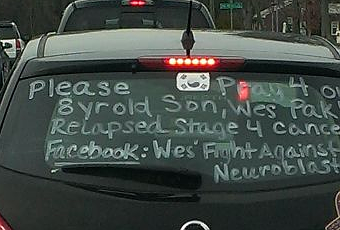 Please Pray 4 ou
8yrold Son, Wes Pak!
Relapsed Stage 4 cance
Facebook: Wes' Fight Against
Neuroblast